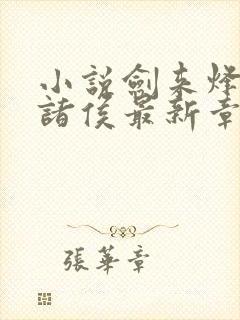 小說劍來烽
諸侯最新章
張華章